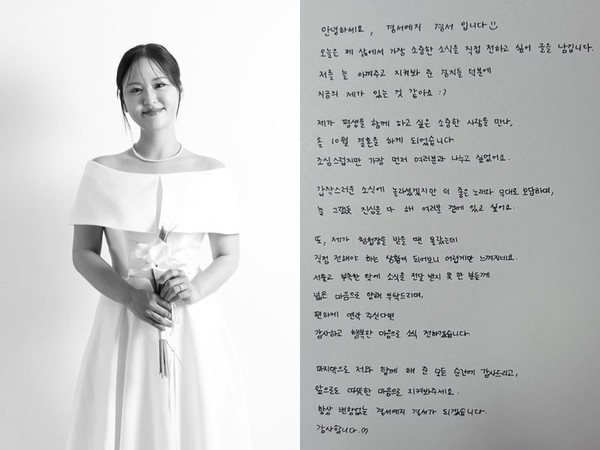 안녕하세요, 경서예지 경서 입니다
오늘은 제 삶에서 가장 소중한 소식을 직접 전하고 싶어 글을 남깁니다.
저를 늘 아껴주고 지켜봐 준 경지들 덕분에
지금의 제가 있는 것 같아요 :)
제가 평생을 함께 하고 싶은 소중한 사람을 만나,
올 10월 결혼을 하게 되었습니다
조심스럽지만 가장 먼저 여러분과 나누고 싶었어요.
갑작스러운 소식에 놀라셨겠지만 더 좋은 노래와 무대로 보답하며,
늘 그랬듯 진심을 다 해 여러분 곁에 있고 싶어요.
또, 제가 청첩장을 받을 땐 몰랐는데
직접 전해야 하는 상황이 되어보니 어렵게만 느껴지네요.
서툴고 부족한 탓에 소식을 전달 받지 못 한 분들께
넓은 마음으로 양해 부탁드리며,
편하게 연락 주신다면
감사하고 행복한 마음으로 소식 전하겠습니다.
마지막으로 저와 함께 해 준 모든 순간에 감사드리고,
앞으로도 따뜻한 마음으로 지켜봐주세요.
항상 변함없는 경서예지 경서가 되겠습니다.
감사합니다.